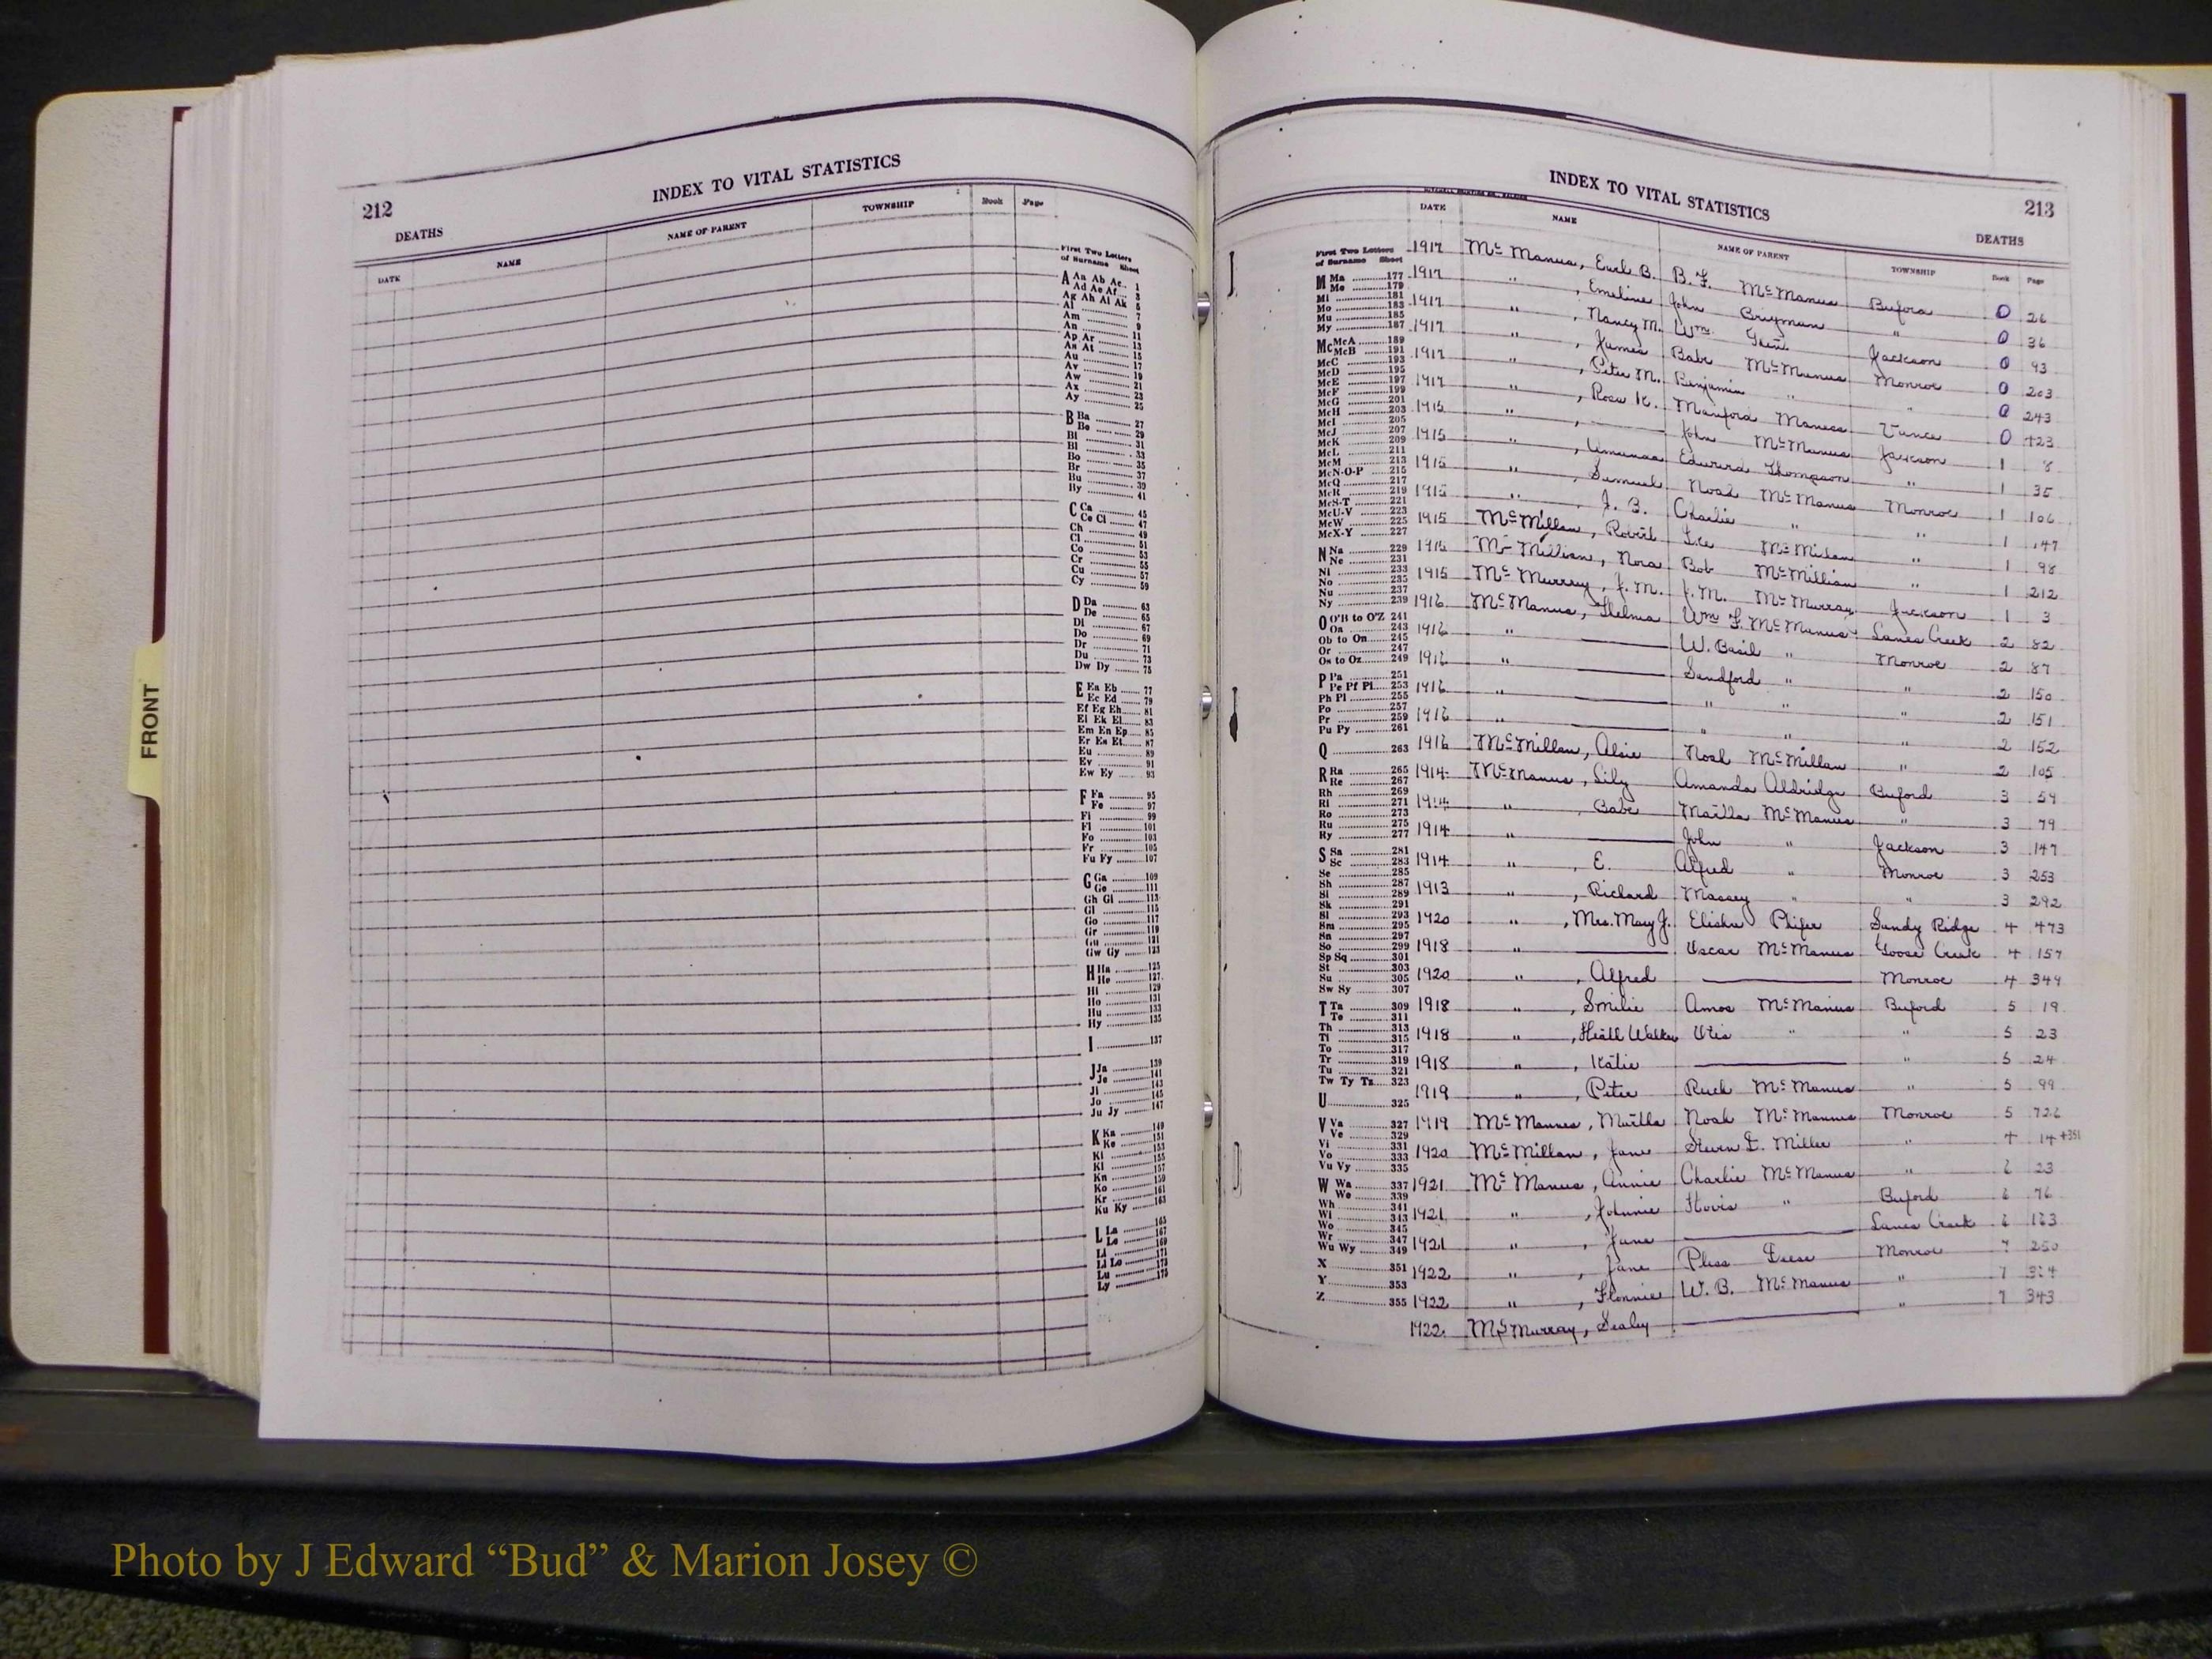 FRONT
212
INDEX TO VITAL STATISTICS
DEATHS
DATE NAME NAME OF PARENT TOWNSHIP Book Page
First Two Letters
of Surname Sheet
A Aa Ab Ac.. 1
Ad Ae Af... 3
Ag Ah Ai Ak 5
Al 7
Am 9
An 11
Ap Ar 13
As At 15
Au 17
Av 19
Aw 21
Ax 23
Ay 25
B Ba 27
Be 29
Bi 31
Bl 33
Bo 35
Br 37
Bu 39
By 41
C Ca 45
Ce Ci 47
Ch 49
Cl 51
Co 53
Cr 55
Cu 57
Cy 59
D Da 63
De 65
Di 67
Do 69
Dr 71
Du 73
Dw Dy 75
E Ea Eb 77
Ec Ed 79
Ef Eg Eh 81
Ei Ek El 83
Em En Ep 85
Er Es Et 87
Eu 89
Ev 91
Ew Ey 93
F Fa 95
Fe 97
Fi 99
Fl 101
Fo 103
Fr 105
Fu Fy 107
G Ga 109
Ge 111
Gh Gi 113
Gl 115
Go 117
Gr 119
Gu 121
Gw Gy 123
H Ha 125
He 127
Hi 129
Ho 131
Hu 133
Hy 135
I 137
J Ja 139
Je 141
Ji 143
Jo 145
Ju Jy 147
K Ka 149
Ke 151
Ki 153
Kl 155
Kn 157
Ko 159
Kr 161
Ku Ky 163
L La 165
Le 167
Li 169
Ll Lo 171
Lu 173
Ly 175
INDEX TO VITAL STATISTICS
213
DEATHS
DATE NAME NAME OF PARENT TOWNSHIP Book Page
First Two Letters
of Surname Sheet
M Ma 177
Me 179
Mi 181
Mo 183
Mu 185
My 187
Mc McA 189
McB 191
McC 193
McD 195
McE 197
McF 199
McG 201
McH 203
McI 205
McJ 207
McK 209
McL 211
McM 213
McN-O-P 215
McQ 217
McR 219
McS-T 221
McU-V 223
McW 225
McX-Y 227
N Na 229
Ne 231
Ni 233
No 235
Nu 237
Ny 239
O O'B to O'Z 241
Oa 243
Ob to On 245
Or 247
Os to Oz 249
P Pa 251
Pe Pf Pi 253
Ph Pl 255
Po 257
Pr 259
Pu Py 261
Q 263
R Ra 265
Re 267
Rh 269
Ri 271
Ro 273
Ru 275
Ry 277
S Sa 281
Sc 283
Se 285
Sh 287
Si 289
Sk 291
Sl 293
Sm 295
Sn 297
So 299
Sp Sq 301
St 303
Su 305
Sw Sy 307
T Ta 309
Te 311
Th 313
Ti 315
To 317
Tr 319
Tu 321
Tw Ty Tz 323
U 325
V Va 327
Ve 329
Vi 331
Vo 333
Vu Vy 335
W Wa 337
We 339
Wh 341
Wi 343
Wo 345
Wr 347
Wu Wy 349
X 351
Y 353
Z 355
1917 McManus, Earl B. B. F. McManus Buford 0 26
1917 " , Emeline John " 0 36
1917 " , Nancy M. Wm. Jackson 0 93
1917 " , James Babe McManus Monroe 0 203
1917 " , Peter M. Benjamin " " 0 243
1917 " , Rosa K. Manford Maness Vance 0 423
1915 " , — John McManus Jackson 1 8
1915 " , Amanda Edward Thompson " 1 35
1915 " , Samuel Noah McManus Monroe 1 106
1915 " , J. B. Charlie " " 1 147
1915 McMillan, Robert Lee McMilan " 1 98
1915 McMillian, Nora Bob McMillian " 1 212
1915 McMurray, J. M. J. M. McMurray Jackson 1 3
1916 McManus, Thelma Wm F. McManus Lanes Creek 2 82
1916 " — W. Basil " Monroe 2 87
1916 " — Sandford " " 2 150
1916 " — " " " 2 151
1916 " — " " " 2 152
1916 McMillan, Alsie Noah McMillan " 2 105
1914 McManus, Lily Amanda Aldridge Buford 3 59
1914 " , Babe McManus " 3 79
1914 " — John " Jackson 3 147
1914 " , E. Alfred " Monroe 3 253
1913 " , Richard Massey " " 3 292
1920 " , Mrs. Mary J. Elisha Phifer Sandy Ridge 4 473
1918 " — Oscar McManus Goose Creek 4 157
1920 " , Alfred — Monroe 4 349
1918 " , Smilie Amos McManus Buford 5 19
1918 " , Walker Otis " " 5 23
1918 " , Katie — " 5 24
1919 " , Peter McManus " 5 99
1919 McManus, Noah McManus Monroe 5 726
1920 McMillan, Jane Miller " 4 14+351
1921 McManus, Annie Charlie McManus " 6 23
1921 " , Johnnie Hovis " Buford 6 76
1921 " , Jane — Lanes Creek 6 163
1922 " , Jane Pless Monroe 7 250
1922 " , Flonnie W. B. McManus " 7 324
1922 McMurray, Sealy — " 7 343
Photo by J Edward “Bud” & Marion Josey ©